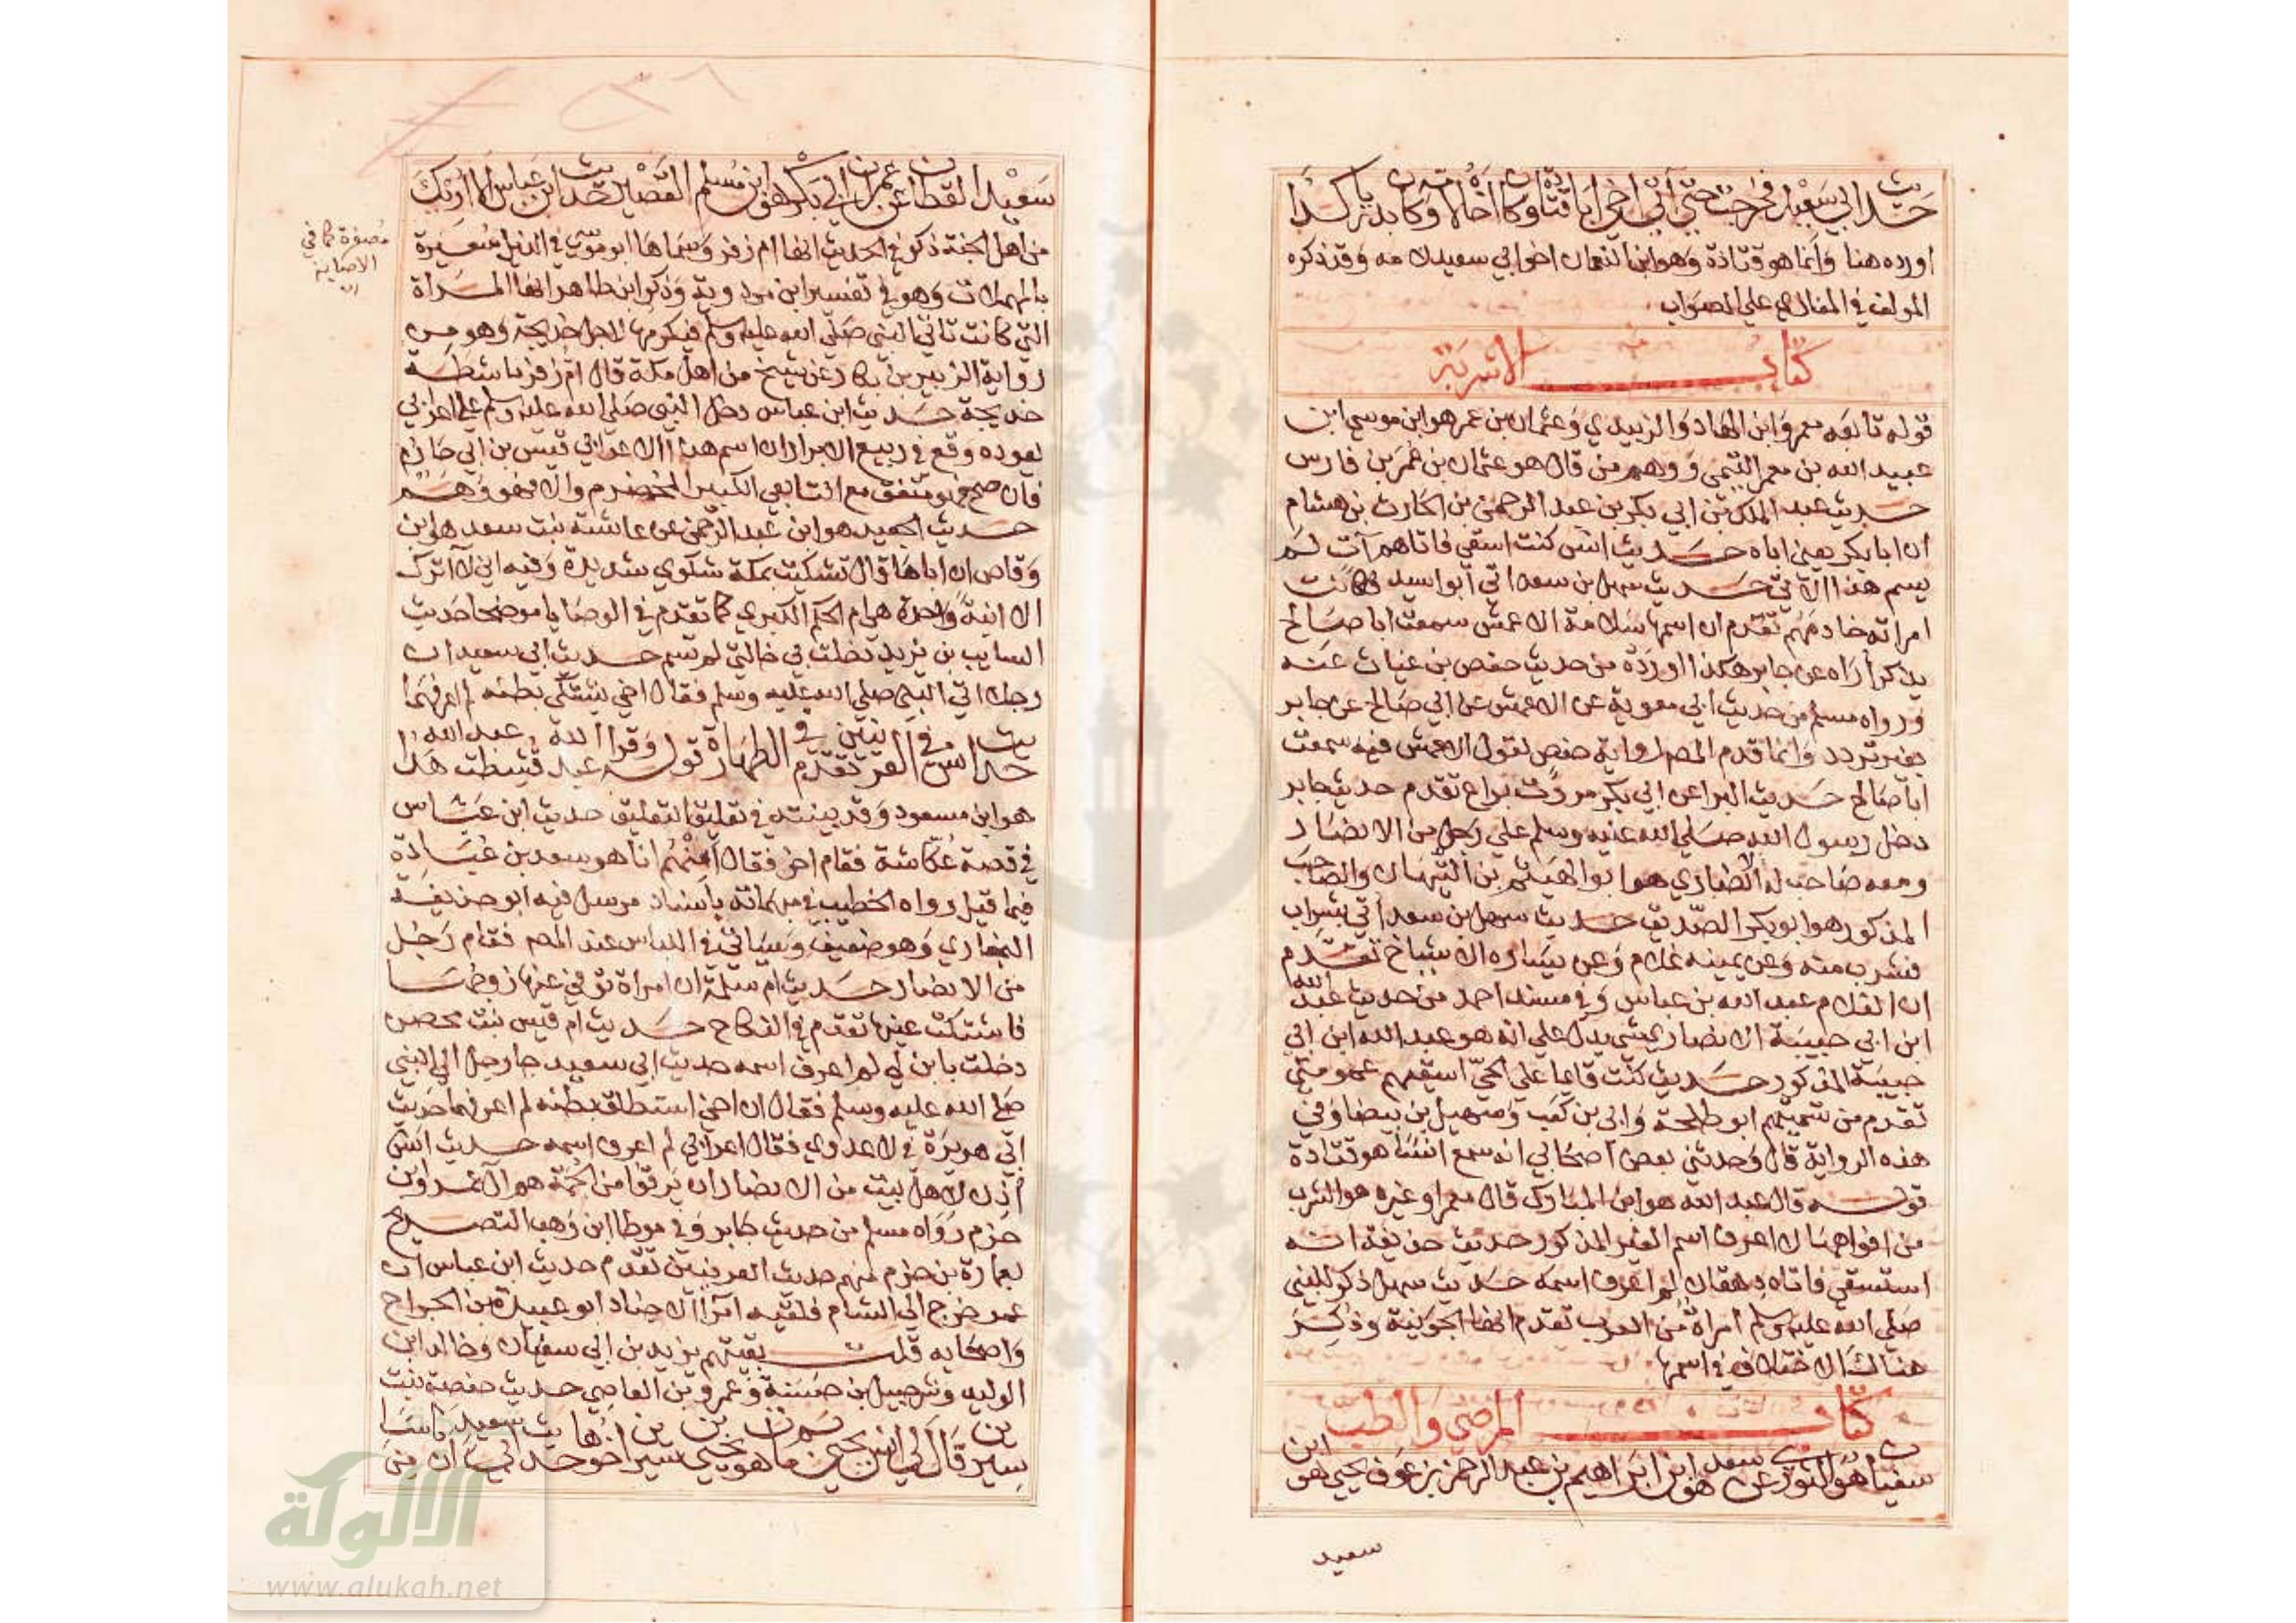 حديث ابي سعيد فخرجت حتى آتي اخي ابا قتادة وكان اخاه لامه وكان بدريا كذا
اورده هنا وَانما هو قتادة وَهو ابن النعمان اخو ابي سعيد لامه وَقد ذكره
المولف في المغازي علي الصوَاب
كتاب الاشربة
قوله تابعه معمر وَابن الهاد وَالزبيدي وَعثمان بن عمر هو ابن موسي ابن
عبيد الله بن معمر التيمي وَوهم من قال هو عثمان بن عُمَر بن فارس
حديث عبد الملك بن ابي بكر بن عبد الرحمن بن الحارث بن هشام
ان ابا بكر يعني اباه حديث انس كنت اسقي فاتاهم آت لم
يسم هذا الآتي حديث سهل بن سعد اتي أبو اسيد فكانت
امراته خادمهُم تقدم ان اسمها سَلامة الاعمش سمعت ابا صَالح
يذكر أرَاه عن جابر هكذا اورَدَه من حديث حفص بن غياث عَنه
وَرواه مسلم من حديث ابي معوية عن الاعمش عن ابي صَالح عن جابر
بغير تردد وَانما قدم المصـ رواية حفص لقول الاعمش فيه سمعت
ابا صَالح حديث البرا عن ابي بكر مررت براع تقدم حديث جابر
دخل رسول الله صَلي الله عليه وسلم علي رَجل من الانصَار
ومعه صَاحب له الانصَاري هو ابو الهَيثم بن التيهَان وَالصَاحبَ
المذكور هو ابو بكر الصّديق حديث سهل بن سعد أتي بشراب
فشرب منه وَعن يمينه غلام وَعن يسَاره الاشياخ تقدم
ان الغلام عبد الله بن عباس وَفي مسند احمد من حديث عبد الله
ابن ابي حبيبَة الانصاري شي يدل علي انه هو عبد الله ابن ابي
حبيبَة المذكور حديث كنت قايما علي الحيّ اسقيهم عمومتي
تقدم من تسميتهم ابو طلحة وَابي بن كعَب وَسهيل بن بيضا وَفي
هذه الرواية قال وَحدثني بعض اصحَابي انه سمع انسَا هو قتادة
قوله قال عبد الله هو ابن المبَارك قال معمر او غيره هو الشرب
من افواهها لا اعرف اسم الغير المذكور حديث حذيفة انه
استسقي فاتاه دهقان لم اعرف اسمه حديث سهل ذكر للنبي
صَلي الله عليه وسلم امرأة من العرب تقدم انها الجوَنية وَذُكِرَ
هناك الاختلاف في اسمها
كتاب المرضي والطب
سفيان هو الثوري عن سعد هو ابن ابراهيم بن عبد الرحمن بن عوف يحيي هو ابن
سعيد
سَعيد القطان عن عمران ابي بكر هو ابن مُسلم القصير حديث ابن عباس الا أريك
من اهل الجنة ذكر في الحديث انها ام زفر وَسماها ابو موسي في الذيل سُعَيرة
بالمهملات وَهو في تفسير ابن مردوية وَذكر ابن طاهر انها المرأة
التي كانت تاتي النبي صَلّي الله عليه وسلم فيكرمها لاجل خديجة وَهو من
رواية الزبير بن بكار عن شيخ من اهل مكة قال ام زفر ماشطة
خديجة حديث ابن عباس دخل النبي صَلي الله عليه وسلم علي اعرابي
يعوده وقع في ربيع الابرار ان اسم هذا الاعرابي قيس بن ابي حَازم
فان صح فهو متفق مع التابعي الكبير المخضرم وَالا فهو وَهَم
حديث الجعيد هو ابن عبد الرحمن عن عائشة بنت سعد هو ابن
وَقاص ان أباهَا قال تشكيت بمكة شكوي شديدة وَفيه اني لا اترك
الا ابنة وَاحدة هي ام الحكم الكبري كما تقدم في الوصَايا موضحا حَديث
السايب بن يزيد دخلت بي خالتي لم تسم حديث ابي سعيد ان
رجلا اتي النبي صلي الله عليه وسلم فقال اخي يشتكي بطنه لم اعرفهمَا
حديث انس في العرنيين تقدم في الطهَارة قوله وَقرا عبد الله قشطت هذا عبد الله
هو ابن مسعود وَقد بينته في تعليق التعليق حديث ابن عَبّاس
في قصة عُكّاشة فقام اخر فقال أمنهُم انا هو سعد بن عُبَادة
فيما قيل رواه الخطيب في مبهماته باسناد مرسل فيه ابو حذيفة
البخاري وَهو ضعيف وَسيَاتي في اللباس عند المصـ فقام رَجُل
من الانصار حديث ام سَلمة ان امراة توفي عنها زوجهَا
فاشتكت عينها تقدم في النكاح حديث ام قيس بنت محصن
دخلت بابن لي لم اعرف اسمه حديث ابي سعيد جا رجل الي النبي
صَلي الله عليه وسلم فقال ان اخي استطلق بطنه لم اعرفهما حَديث
ابي هريرَة في لا عدوي فقال اعرَابي لم اعرف اسمه حديث انس
أذن لاهل بيت من الانصار ان يَرقوا من الحُمَة هو آل عَمرو بن
حزم رَوَاه مسلم من حديث جَابر وَفي موطا ابن وَهب التصريح
بعمارة بن حزم منهم حديث العرنيين تقدم حديث ابن عباس ان
عمر خرج الي الشام فلقيه امَرا الاجناد أبو عبيدة بن الجراح
وَاصحَابه قلت بقيتهم يزيد بن ابي سفيَان وَخالد ابن
الوليد وَشرحبيل بن حَسَنة وَعمرو بن العَاصِي حديث حفصة بنت
سيرين قَال لي انس يحيي بما مات هو يحيي بن سيرين اخوها حديث ابي سعيد ان ناسا كانوا من
مصغرة كما في
الاصابة
اه
الالوكة
www.alukah.net